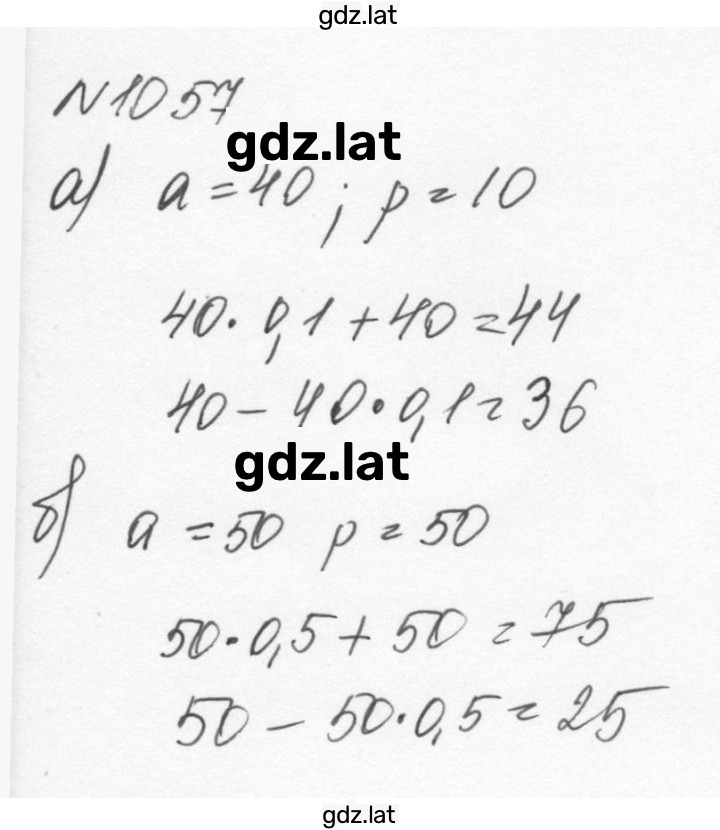 gdz.lat
N1057
gdz.lat
а) a = 40 ; p = 10
40 · 0,1 + 40 = 44
40 - 40 · 0,1 = 36
gdz.lat
б) a = 50 p = 50
50 · 0,5 + 50 = 75
50 - 50 · 0,5 = 25
gdz.lat